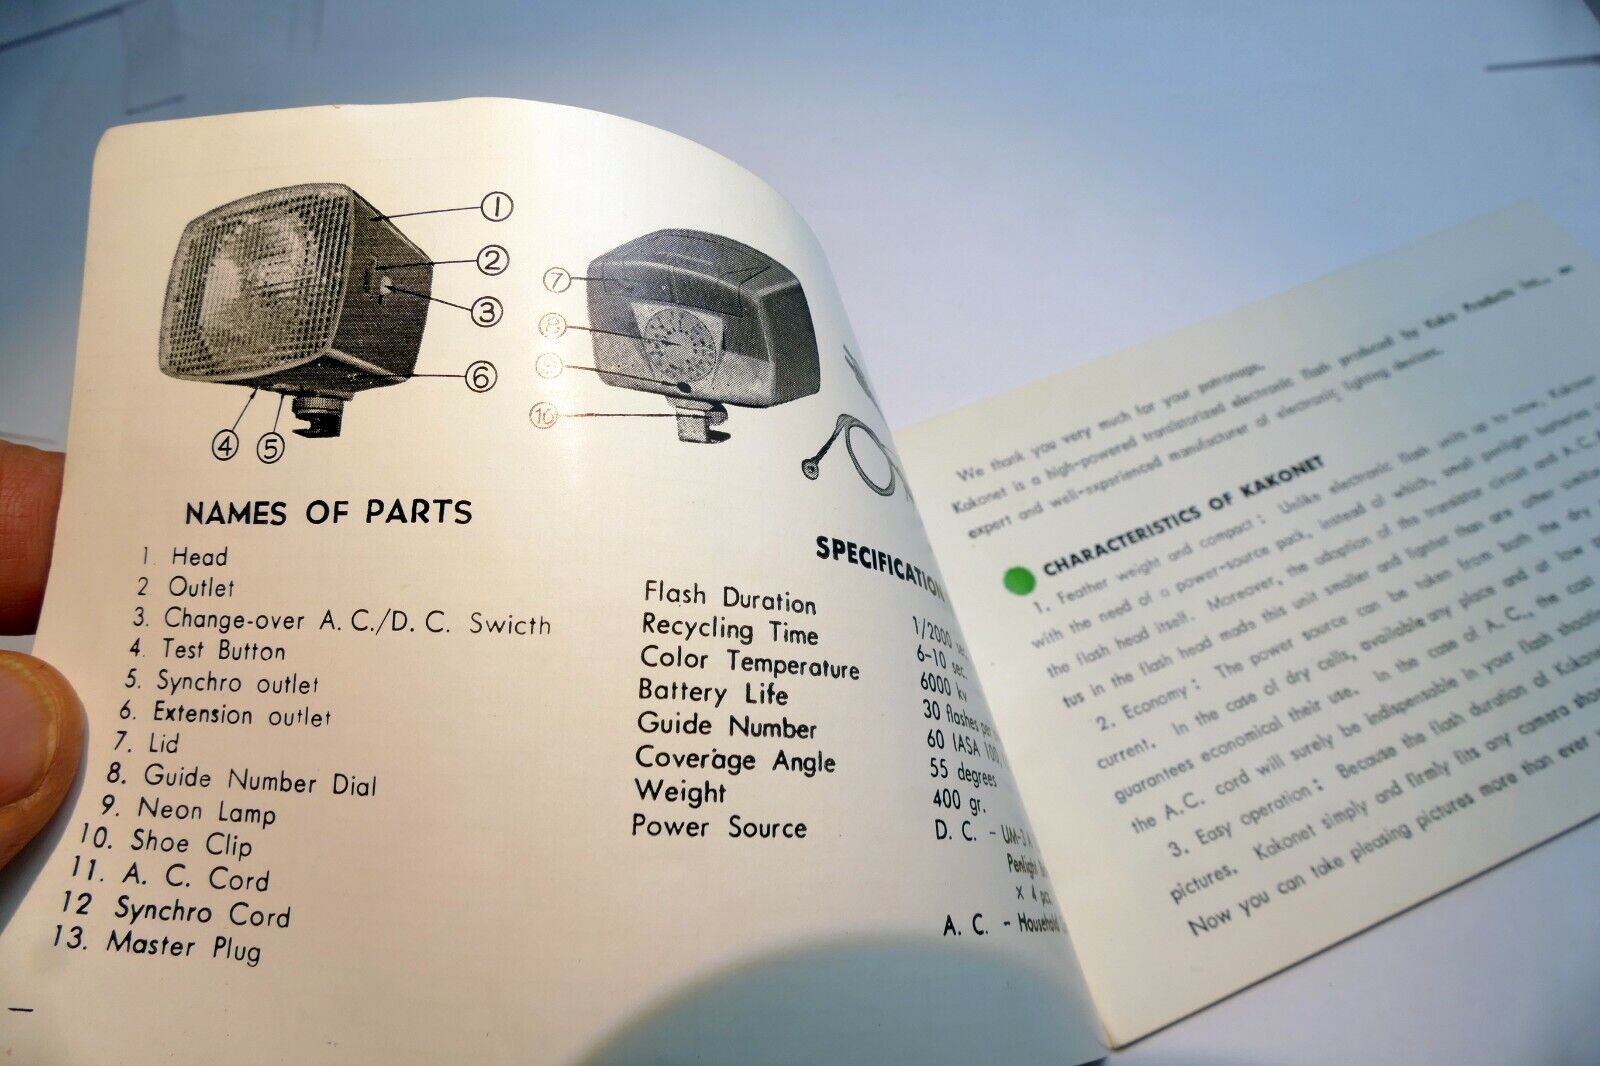 1
2
3
6
4
5
7
8
9
10
NAMES OF PARTS
1. Head
2 Outlet
3. Change-over A. C./D. C. Swicth
4. Test Button
5. Synchro outlet
6. Extension outlet
7. Lid
8. Guide Number Dial
9. Neon Lamp
10. Shoe Clip
11. A. C. Cord
12 Synchro Cord
13. Master Plug
SPECIFICATION
Flash Duration 1/2000 sec.
Recycling Time 6-10 sec.
Color Temperature 6000 kv
Battery Life 30 flashes per
Guide Number 60 (ASA 100
Coverage Angle 55 degrees
Weight 400 gr.
Power Source D. C. - UM-3 A
Penlight
x 4 pc.
A. C. - Household
We thank you very much for your patronage.
Kakonet is a high-powered transistorized electronic flash produced by Kako Products Inc., an
expert and well-experienced manufacturer of electronic lighting devices.
CHARACTERISTICS OF KAKONET
1. Feather weight and compact: Unlike electronic flash units up to now, Kakonet
with the need of a power-source pack, instead of which, small penlight batteries
the flash head itself. Moreover, the adoption of the transistor circuit and A.C.
tus in the flash head made this unit smaller and lighter than are other similar
2. Economy: The power source can be taken from both the dry
current. In the case of dry cells, available any place and at low
guarantees economical their use. In the case of A. C., the cost
the A.C. cord will surely be indispensable in your flash shooting
3. Easy operation: Because the flash duration of Kakonet
pictures. Kakonet simply and firmly fits any camera shoe
Now you can take pleasing pictures more than ever